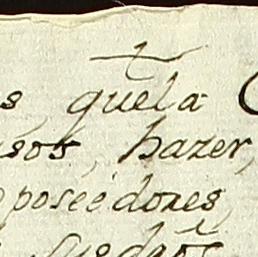 s, quel a
sos, hazer,
poseedores,